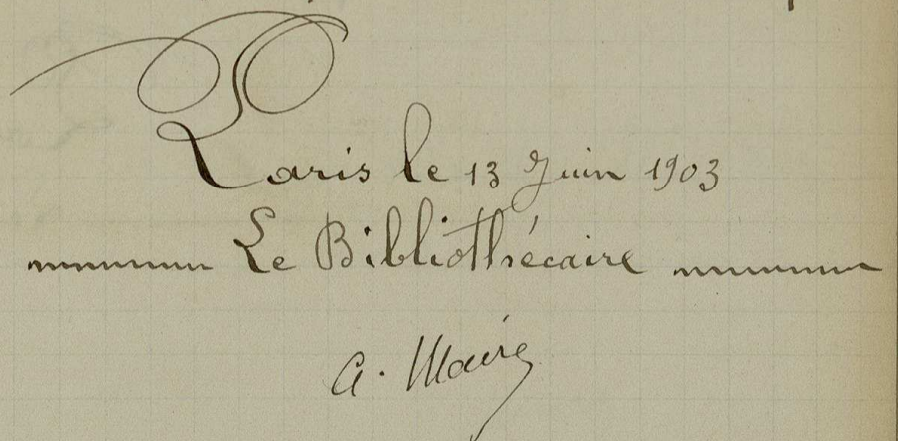 Paris le 13 Juin 1903
Le Bibliothécaire
A. Maire